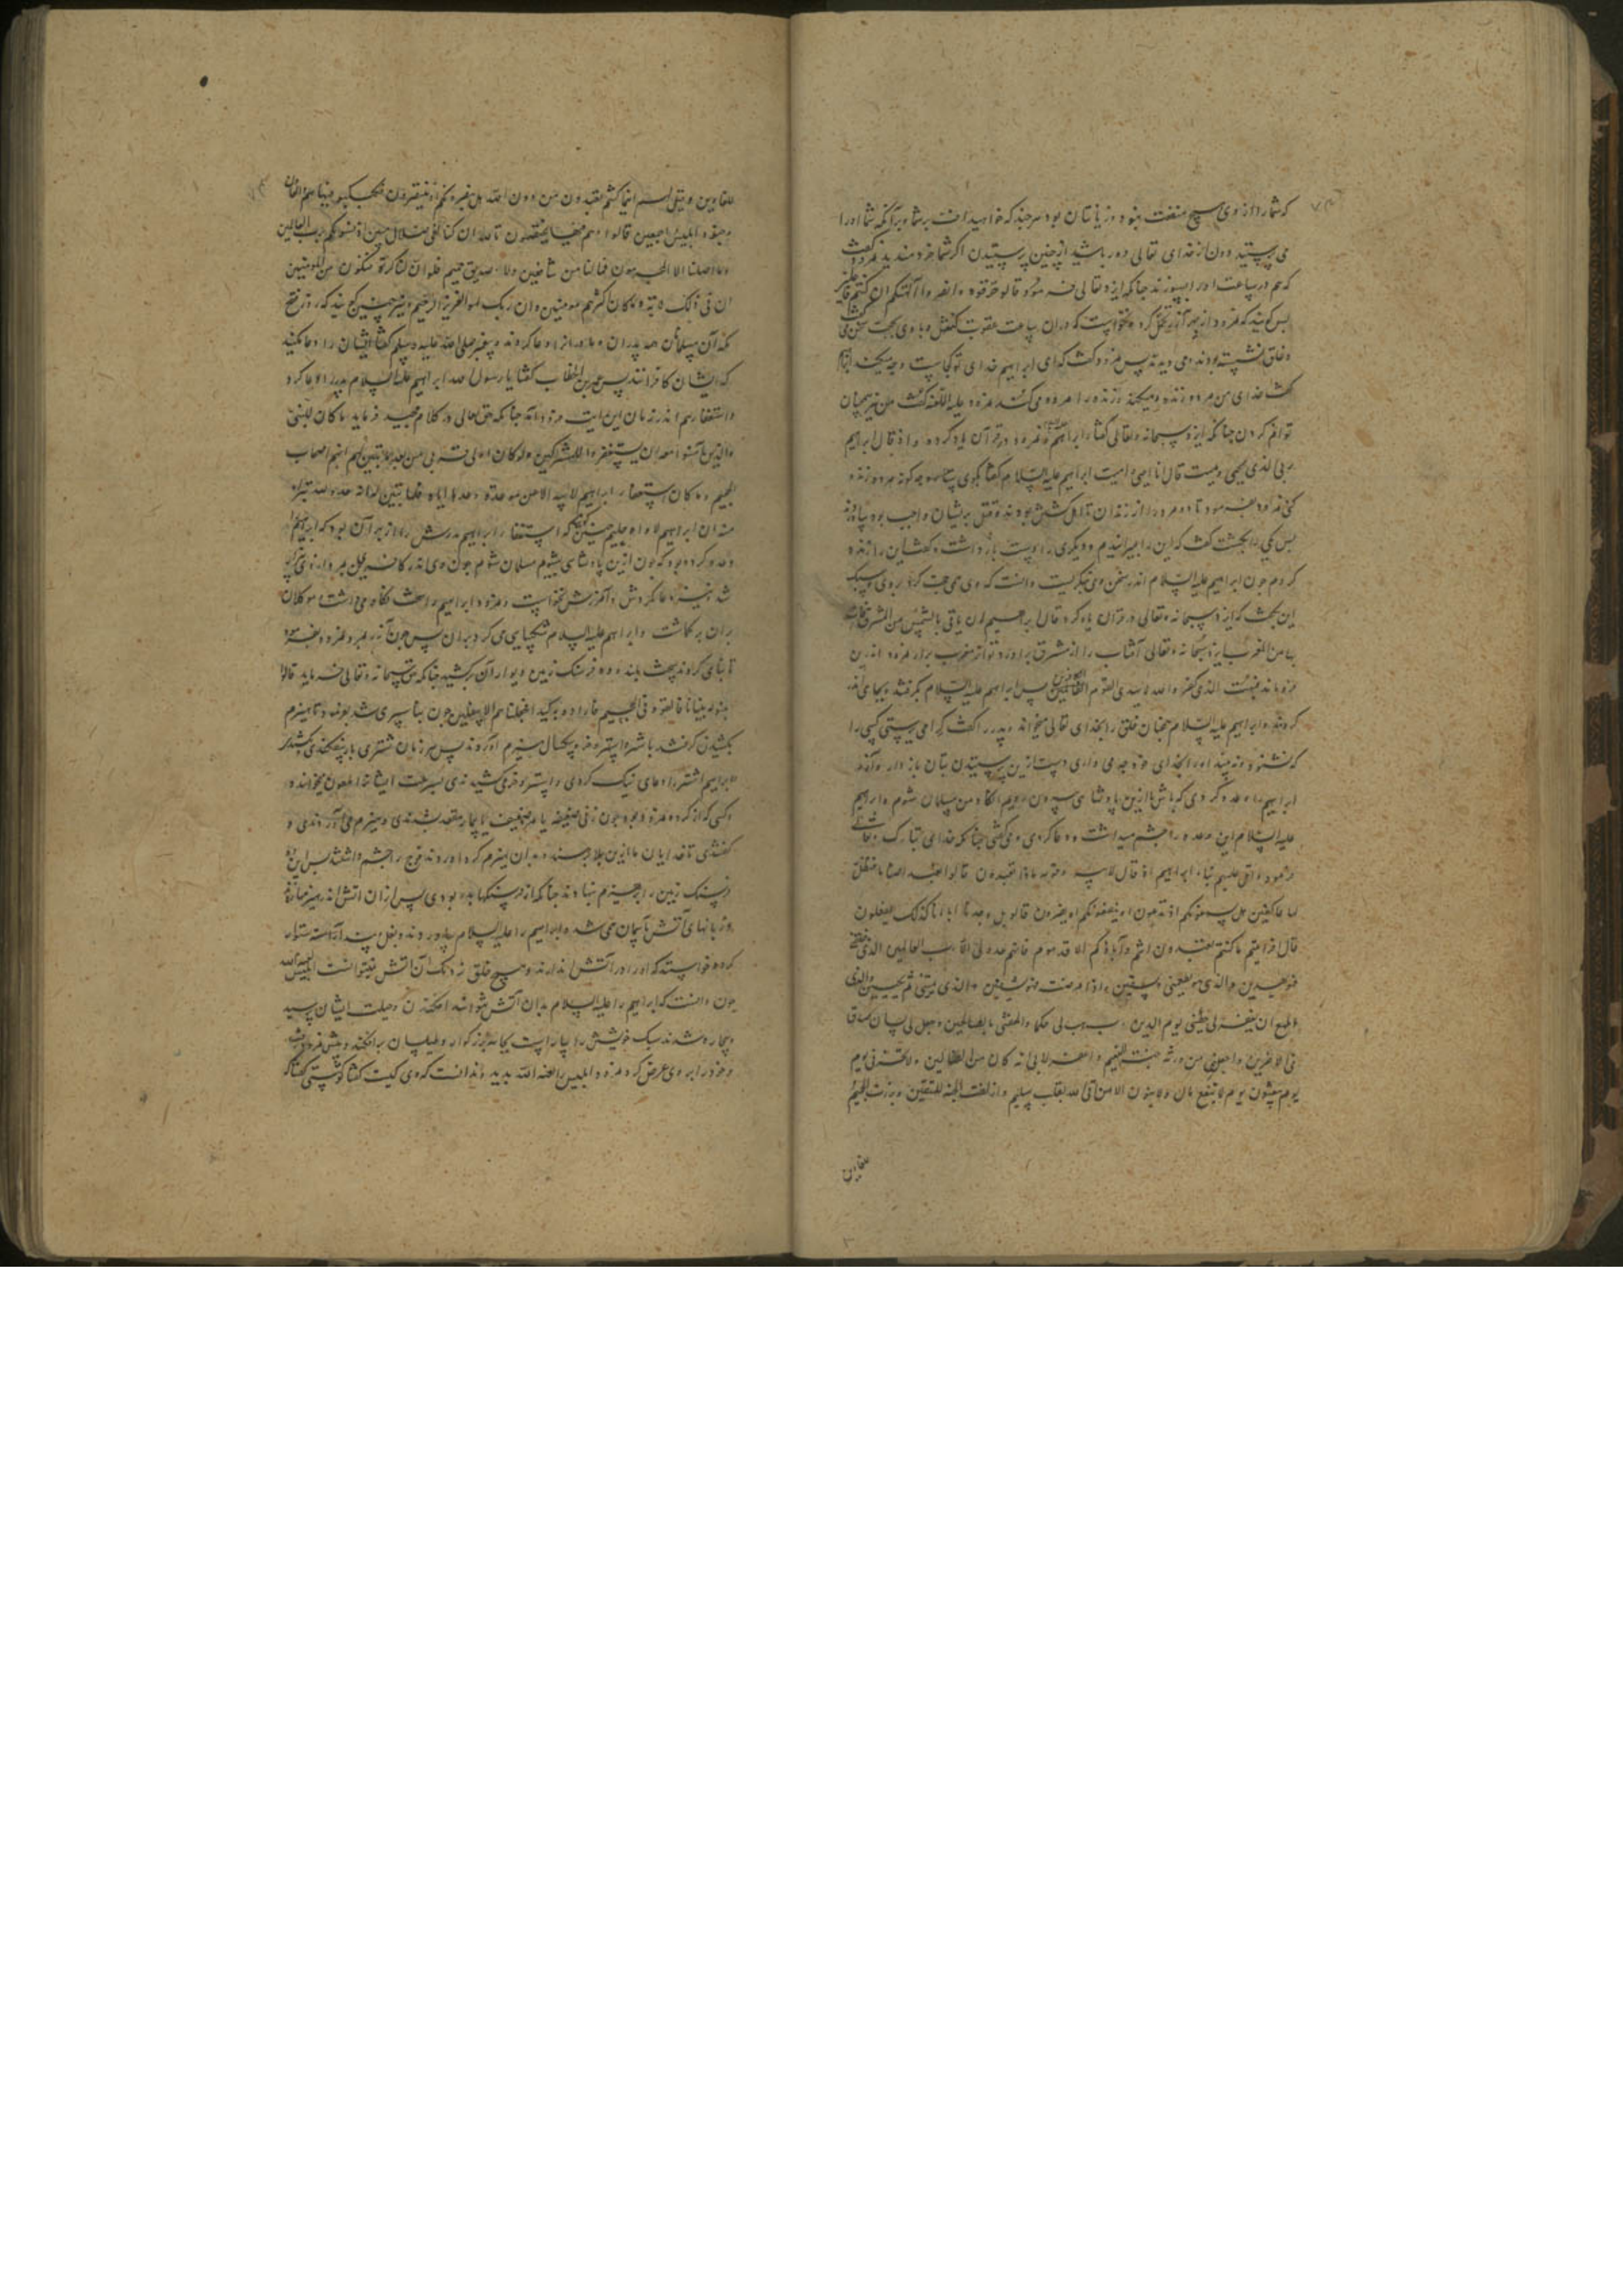 که شمارا از وی هیچ منفعت نبود و نه زیانتان بود هرچند که خواهید اف بر شما و بر آنکه شما اورا
می پرستید دون از خدای تعالی دور باشید از چنین پرستیدن اگر شما خردمندید نمرود گفت
که هم در ساعت اورا بسوزند چنانکه ایزد تعالی فرمود قالو حرقوه وانصروا آلهتکم ان کنتم فاعلین
پس گویند که نمرود از بهر آزر تحمل کرد و نخواست که در آن ساعت عقوبت کندش و با وی بحجت سخن
و خلق نشسته بودند و می دیدند پس نمرود گفت که ای ابراهیم خدای تو کجاست و چه میکند
گفت خدای من مرده زنده میکند و زنده را مرده می کند نمرود علیه اللعنه گفت من نیز همچنان
توانم کردن چنانکه ایزد سبحانه و تعالی گفتار ابراهیم و نمرود در قرآن یاد کرده و اذ قال ابراهیم
ربی الذی یحیی و یمیت قال انا احیی و امیت ابراهیم علیه السلام گفتا بگوی چه گونه مرده زنده
کنی نمرود بفرمود تا دو مرد را از زندان که اهل کشش بودند و قتل بریشان واجب بود بیاوردند
پس یکی را بکشت گفت که این را بمیرانیدم و دیگری را دست باز داشت و گفت این را زنده
کردم چون ابراهیم علیه السلام اندر سخن وی نگریست دانست که وی
این بحث که ایزد سبحانه و تعالی در قرآن یاد کرد قال ابراهیم ان یاتی بالشمس من المشرق فات
بها من المغرب ایزد سبحانه و تعالی آفتاب را از مشرق برآورد تو از مغرب برآر نمرود اندرین
فرو ماند فبهت الذی کفر و الله لا یهدی القوم الظالمین پس ابراهیم علیه السلام بگرفتند و بجای
کردند و ابراهیم علیه السلام همچنان خلق را بخدای تعالی میخواند و پدر را گفت کرا می پرستی کسی را
که نشنود و نه بیند اورا بخدای خود چه می داری دست ازین پرستیدن بتان باز دار و آزر
ابراهیم را وعده کردی که باش تا ازین پادشاهی بیرون رویم آنگاه من مسلمان شوم و ابراهیم
علیه السلام این وعده را چشم میداشت و دعا کردی و می گفتی چنانکه خدای تبارک و تعالی
فرمود و اتل علیهم نباء ابراهیم اذ قال لابیه و قومه ما ذا تعبدون قالوا نعبد اصناما فنظل
لها عاکفین هل یسمعونکم اذ تدعون او ینفعونکم او یضرون قالو بل وجدنا اباءنا کذلک یفعلون
قال افرایتم ما کنتم تعبدون انتم و آباؤکم الاقدمون فانهم عدو لی الا رب العالمین الذی خلقنی
فهو یهدین والذی هو یطعمنی و یسقین و اذا مرضت فهو یشفین والذی یمیتنی ثم یحیین والذی
اطمع ان یغفر لی خطیئتی یوم الدین رب هب لی حکما و الحقنی بالصالحین و اجعل لی لسان صدق
فی الاخرین واجعلنی من ورثه جنت النعیم و اغفر لابی انه کان من الضالین و لا تخزنی یوم
یوم یبعثون یوم لا ینفع مال و لا بنون الا من اتی الله بقلب سلیم و ازلفت الجنه للمتقین و برزت الجحیم
للغاوین
للغاوین و قیل لهم اینما کنتم تعبدون من دون الله هل ینصرونکم او ینتصرون فکبکبو فیها هم و الغاون
و جنود ابلیس اجمعین قالوا و هم فیها یختصمون تالله ان کنا لفی ضلال مبین اذ نسویکم برب العالمین
و ما اضلنا الا المجرمون فما لنا من شافعین ولا صدیق حمیم فلو ان لنا کرة فنکون من المومنین
ان فی ذلک لایة و ما کان اکثرهم مومنین و ان ربک لهو العزیز الرحیم و نیز چنین گویند که روز فتح
مکه آن مسلمانان همه پدران و مادران را دعا کردند و پیغمبر صلی الله علیه و سلم گفتا ایشان را دعا مکنید
که ایشان کافرانند پس عمر بن الخطاب گفتا یا رسول الله ابراهیم علیه السلام پدر را دعا کرد
و استغفار هم اندر زمان این ایت فرود آمد چنانکه حق تعالی در کلام مجید فرماید ما کان للنبی
والذین آمنوا معه ان یستغفروا للمشرکین و لو کانوا اولی قربی من بعد ما تبین لهم انهم اصحاب
الجحیم و ما کان استغفار ابراهیم لابیه الا من موعدة وعدها ایاه فلما تبین له انه عدو لله تبرا
منه ان ابراهیم لاواه حلیم چنین گویند که استغفار ابراهیم پدرش را از بهر آن بود که ابراهیم را
وعده کرده بود که چون ازین پادشاهی بشویم مسلمان شوم چون وی اندر کافری بمرد از وی بیزار
شد و نیز دعا نکردش و آمرزش نخواست و نمرود ابراهیم را سخت نگاه می داشت و موکلان
بران بر کماشت و ابراهیم علیه السلام شکیبایی می کرد بران پس چون آزر بمرد نمرود بفرمود
تا بنای کردند سخت بلند و ده فرسنک زمین دیوار آن برکشید چنانکه حق سبحانه و تعالی فرماید قالوا
ابنوله بنیانا فالقوه فی الجحیم فارادو به کیدا فجعلناهم الاسفلین چون بنا سپری شد بفرمود تا هیزم
بکشیدن گرفتند باشتر و استر و خر و یکسال هیزم آوردند پس هر زمان اشتری بار بیفکندی
ابراهیم اشتر را دعای نیک کردی و استر و خر می کشیدندی بسرعت ایشان را ملعون خواند و
هرکسی که از کرده نمرود و جود چون زنی ضعیفه یا مرد ضعیف یا بیمار معتقد شدندی و هیزم می آوردندی و
گفتندی تا خدایان ما ازین بلا برهند و بدان هیزم گرد آوردند رنج را چشم داشتند پس این ده
فرسنک زمین را پر هیزم نهادند چنانکه از فرسنکها بدید بودی پس از آن آتش اندر هیزم نهادند
و زبانهای آتش بآسمان می شد و ابراهیم را علیه السلام بیاوردند و بغل و بند آراسته استوار
کرده خواستند که اورا در آتش اندازند و هیچ خلق نزدیک آن آتش نمیتوانست ابلیس لعنه الله
چون دانست که ابراهیم را علیه السلام بدان آتش نتوانند افکندن و حیلت ایشان برسید
و بیچاره شدند سبک خویش را بیاراست بجامه بزرگوار و طیلسان برافکند و پیش نمرود شد
و خود را بر وی عرض کرد نمرود ابلیس را لعنه الله بدید ندانست که وی کیست گفتا تو کیستی گفتا که